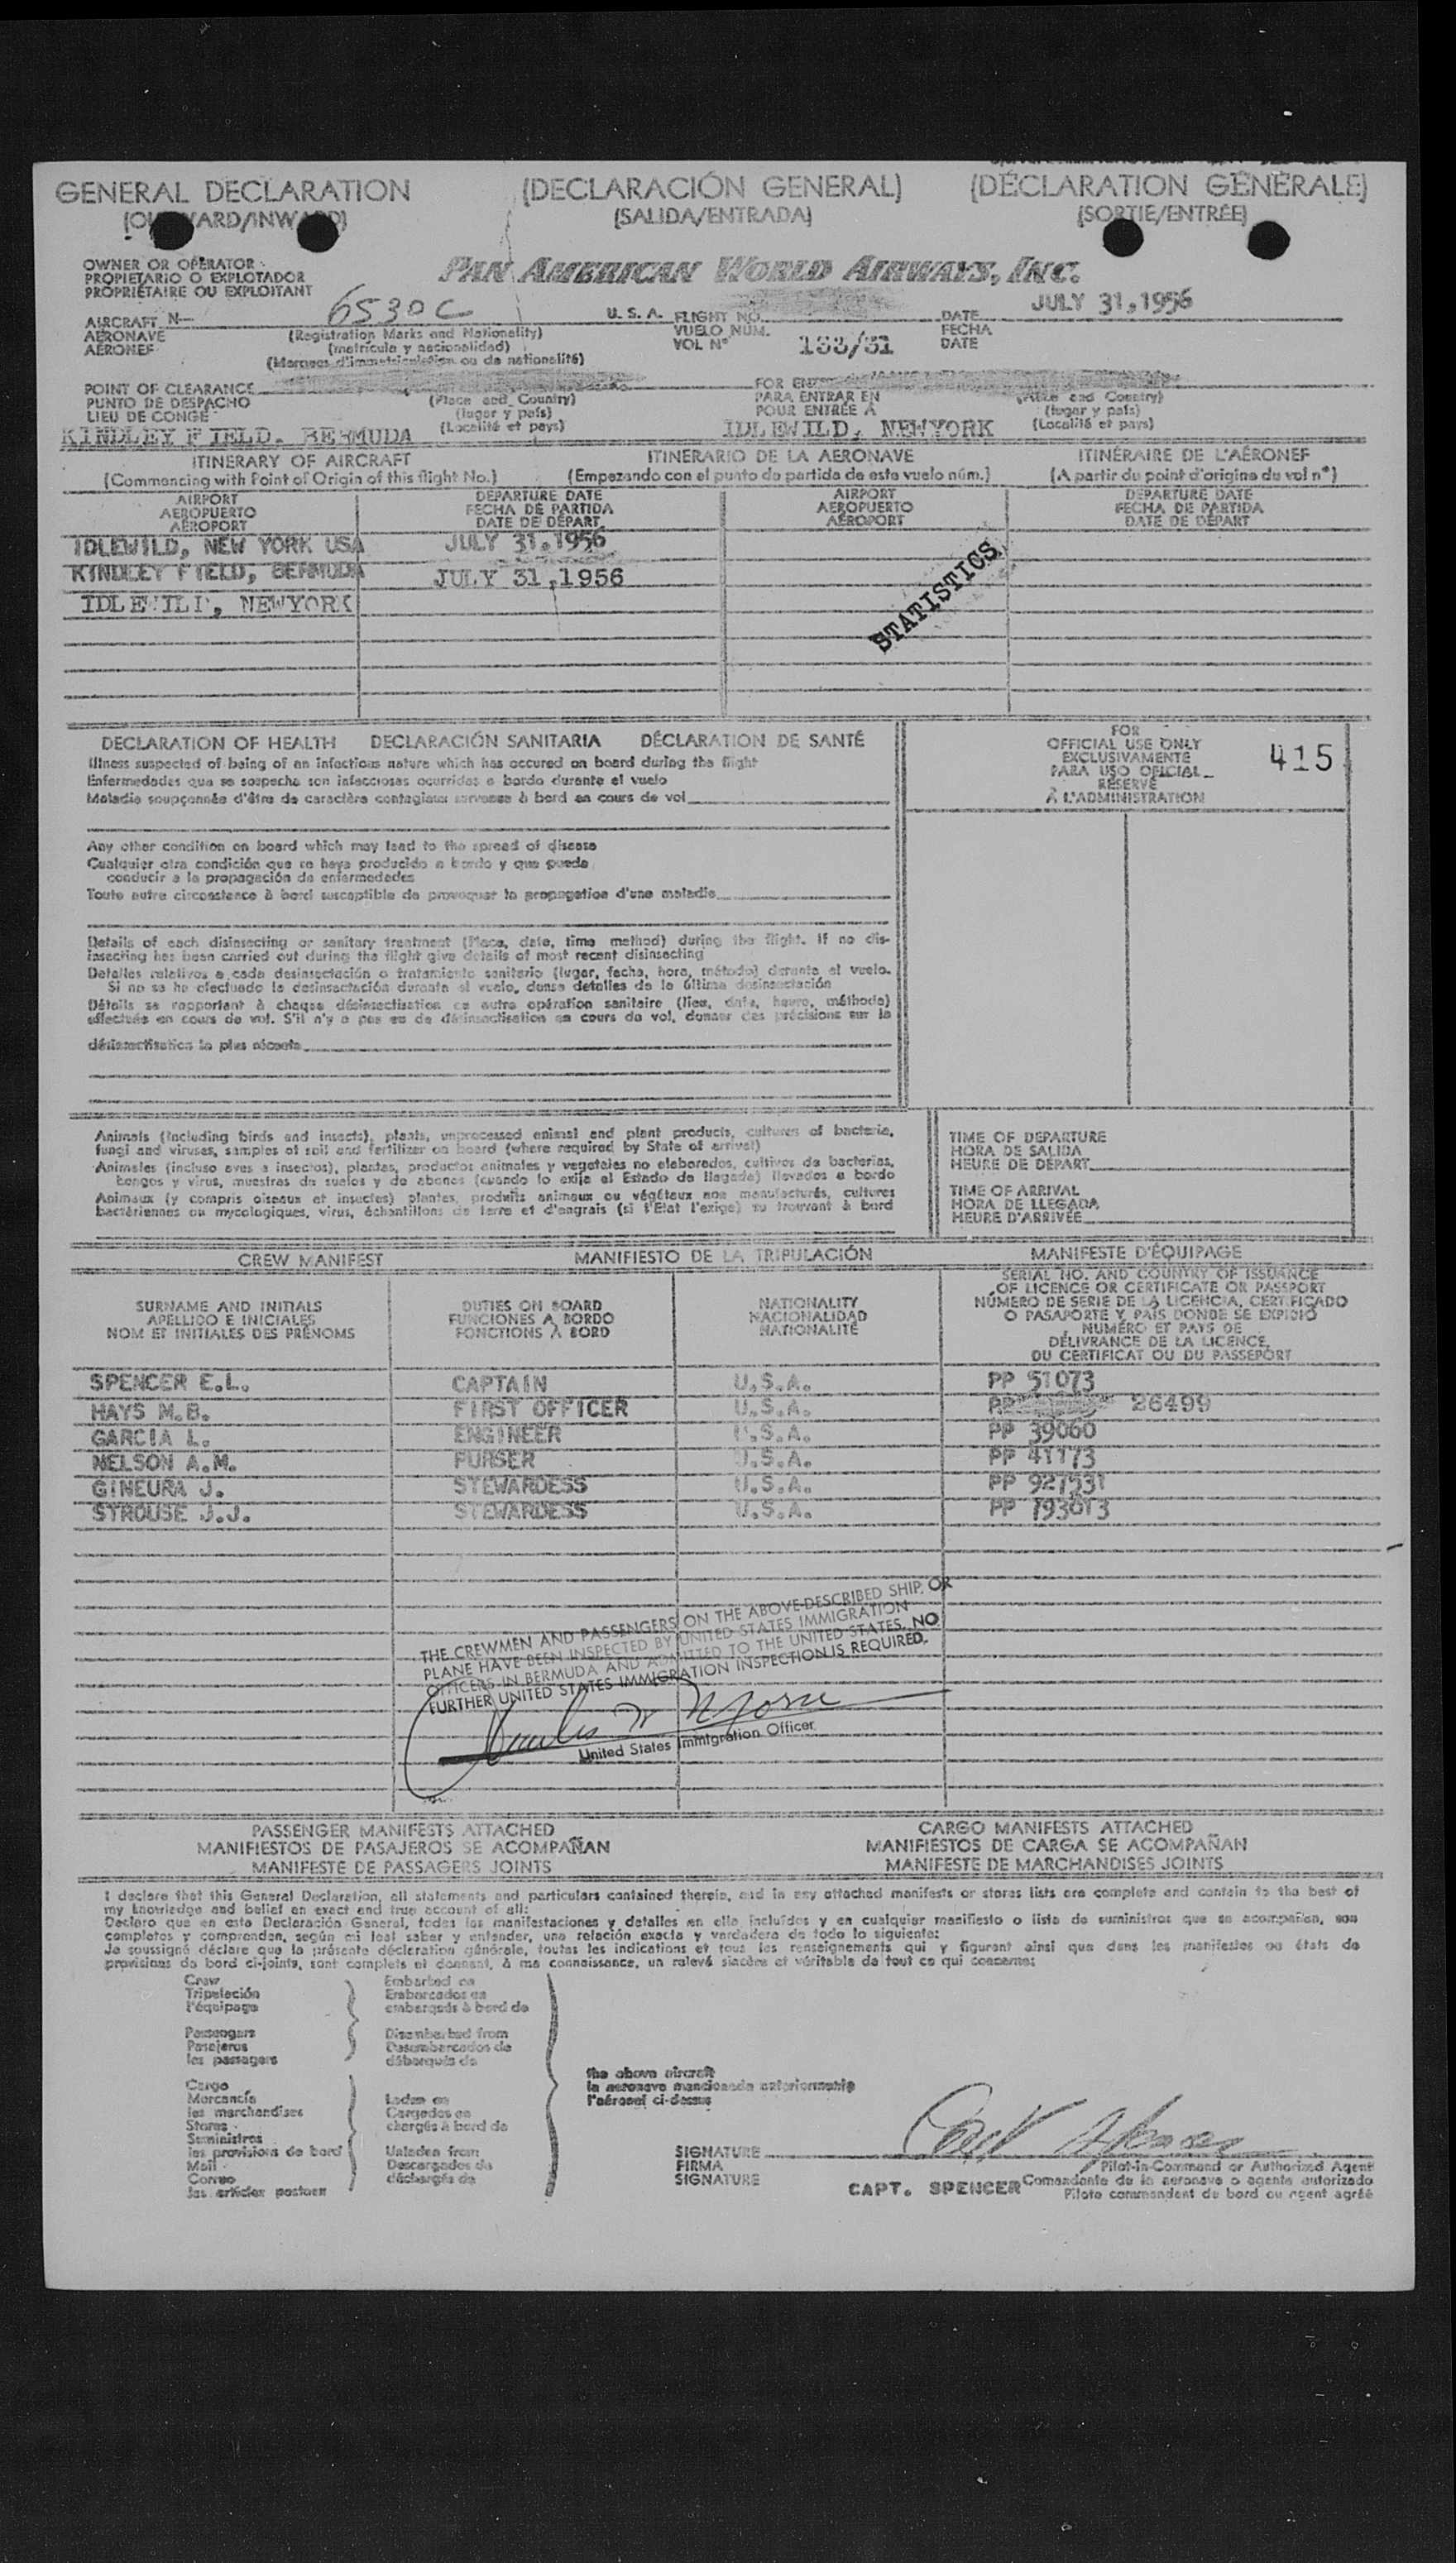 GENERAL DECLARATION (DECLARACIÓN GENERAL) (DÉCLARATION GÉNÉRALE)
(OUTWARD/INWARD) (SALIDA/ENTRADA) (SORTIE/ENTRÉE)
OWNER OR OPERATOR
PROPIETARIO O EXPLOTADOR
PROPRIÉTAIRE OU EXPLOITANT
PAN AMERICAN WORLD AIRWAYS, INC.
AIRCRAFT N— 6530C U. S. A. FLIGHT NO. DATE JULY 31,1956
AERONAVE (Registration Marks and Nationality) VUELO NÚM. FECHA
AÉRONEF (matrícula y nacionalidad) VOL N° 133/31 DATE
(Marques d'immatriculation ou de nationalité)
POINT OF CLEARANCE FOR ENTRY
PUNTO DE DESPACHO (Place and Country) PARA ENTRAR EN (Place and Country)
LIEU DE CONGÉ (lugar y país) POUR ENTRÉE A (lugar y país)
KINDLEY FIELD. BERMUDA (Localité et pays) IDLEWILD, NEWYORK (Localité et pays)
ITINERARY OF AIRCRAFT ITINERARIO DE LA AERONAVE ITINÉRAIRE DE L'AÉRONEF
(Commencing with Point of Origin of this flight No.) (Empezando con el punto de partida de este vuelo núm.) (A partir du point d'origine du vol n°)
AIRPORT DEPARTURE DATE AIRPORT DEPARTURE DATE
AEROPUERTO FECHA DE PARTIDA AEROPUERTO FECHA DE PARTIDA
AÉROPORT DATE DE DÉPART AÉROPORT DATE DE DÉPART
IDLEWILD, NEW YORK USA JULY 31,1956
KINDLEY FIELD, BERMUDA JULY 31,1956
IDLEWILD, NEWYORK
STATISTICS
DECLARATION OF HEALTH DECLARACIÓN SANITARIA DÉCLARATION DE SANTÉ
Illness suspected of being of an infectious nature which has occured on board during the flight
Enfermedades que se sospecha son infecciosas ocurridas a bordo durante el vuelo
Maladie soupçonnée d'être de caractère contagieux survenue à bord en cours de vol
FOR
OFFICIAL USE ONLY
EXCLUSIVAMENTE
PARA USO OFICIAL
RESERVÉ
À L'ADMINISTRATION
415
Any other condition on board which may lead to the spread of disease
Cualquier otra condición que se haya producido a bordo y que pueda
conducir a la propagación de enfermedades
Toute autre circonstance à bord susceptible de provoquer la propagation d'une maladie
Details of each disinsecting or sanitary treatment (Place, date, time method) during the flight. If no dis-
insecting has been carried out during the flight give details of most recent disinsecting
Detalles relativos a cada desinsectación o tratamiento sanitario (lugar, fecha, hora, método) durante el vuelo.
Si no se ha efectuado la desinsectación durante el vuelo, dense detalles de la última desinsectación
Détails se rapportant à chaque désinsectisation ou autre opération sanitaire (lieu, date, heure, méthode)
effectués en cours de vol. S'il n'y a pas eu de désinsectisation en cours de vol, donner des précisions sur la
désinsectisation la plus récente
Animals (including birds and insects), plants, unprocessed animal and plant products, cultures of bacteria,
fungi and viruses, samples of soil and fertilizer on board (where required by State of arrival)
Animales (incluso aves e insectos), plantas, productos animales y vegetales no elaborados, cultivos de bacterias,
hongos y virus, muestras de suelos y de abonos (cuando lo exija el Estado de llegada) llevados a bordo
Animaux (y compris oiseaux et insectes) plantes, produits animaux ou végétaux non manufacturés, cultures
bactériennes ou mycologiques, virus, échantillons de terre et d'engrais (si l'État l'exige) se trouvant à bord
TIME OF DEPARTURE
HORA DE SALIDA
HEURE DE DÉPART
TIME OF ARRIVAL
HORA DE LLEGADA
HEURE D'ARRIVÉE
CREW MANIFEST MANIFIESTO DE LA TRIPULACIÓN MANIFESTE D'ÉQUIPAGE
SURNAME AND INITIALS
APELLIDO E INICIALES
NOM ET INITIALES DES PRÉNOMS
DUTIES ON BOARD
FUNCIONES A BORDO
FONCTIONS À BORD
NATIONALITY
NACIONALIDAD
NATIONALITÉ
SERIAL NO. AND COUNTRY OF ISSUANCE
OF LICENCE OR CERTIFICATE OR PASSPORT
NÚMERO DE SERIE DE LA LICENCIA, CERTIFICADO
O PASAPORTE Y PAÍS DONDE SE EXPIDIÓ
NUMÉRO ET PAYS DE
DÉLIVRANCE DE LA LICENCE,
DU CERTIFICAT OU DU PASSEPORT
SPENCER E.L. CAPTAIN U.S.A. PP 51073
HAYS M.B. FIRST OFFICER U.S.A. PP 26499
GARCIA L. ENGINEER U.S.A. PP 39060
NELSON A.M. PURSER U.S.A. PP 41173
GINEURA J. STEWARDESS U.S.A. PP 927531
STROUSE J.J. STEWARDESS U.S.A. PP 193013
THE CREWMEN AND PASSENGERS ON THE ABOVE-DESCRIBED SHIP, OR
PLANE HAVE BEEN INSPECTED BY UNITED STATES IMMIGRATION
OFFICERS IN BERMUDA AND ADMITTED TO THE UNITED STATES. NO
FURTHER UNITED STATES IMMIGRATION INSPECTION IS REQUIRED.
United States Immigration Officer
PASSENGER MANIFESTS ATTACHED CARGO MANIFESTS ATTACHED
MANIFIESTOS DE PASAJEROS SE ACOMPAÑAN MANIFIESTOS DE CARGA SE ACOMPAÑAN
MANIFESTE DE PASSAGERS JOINTS MANIFESTE DE MARCHANDISES JOINTS
I declare that this General Declaration, all statements and particulars contained therein, and in any attached manifests or stores lists are complete and contain to the best of
my knowledge and belief an exact and true account of all:
Declaro que en esta Declaración General, todas las manifestaciones y detalles en ella incluídos y en cualquier manifiesto o lista de suministros que se acompañan, son
completos y comprenden, según mi leal saber y entender, una relación exacta y verdadera de todo lo siguiente:
Je soussigné déclare que la présente déclaration générale, toutes les indications et tous les renseignements qui y figurent ainsi que dans les manifestes ou états de
provisions de bord ci-joints, sont complets et donnent, à ma connaissance, un relevé sincère et véritable de tout ce qui concerne:
Crew Embarked on
Tripulación Embarcados en
l'équipage embarqués à bord de
Passengers Disembarked from
Pasajeros Desembarcados de
les passagers débarqués de
the above aircraft
la aeronave mencionada anteriormente
l'aéronef ci-dessus
Cargo
Mercancía Laden on
les marchandises Cargados en
Stores chargés à bord de
Suministros
les provisions de bord Unladen from
Mail Descargados de
Correo déchargés de
les articles postaux
SIGNATURE Capt Spencer
FIRMA Pilot-in-Command or Authorized Agent
SIGNATURE CAPT. SPENCER Comandante de la aeronave o agente autorizado
Pilote commandant de bord ou agent agréé